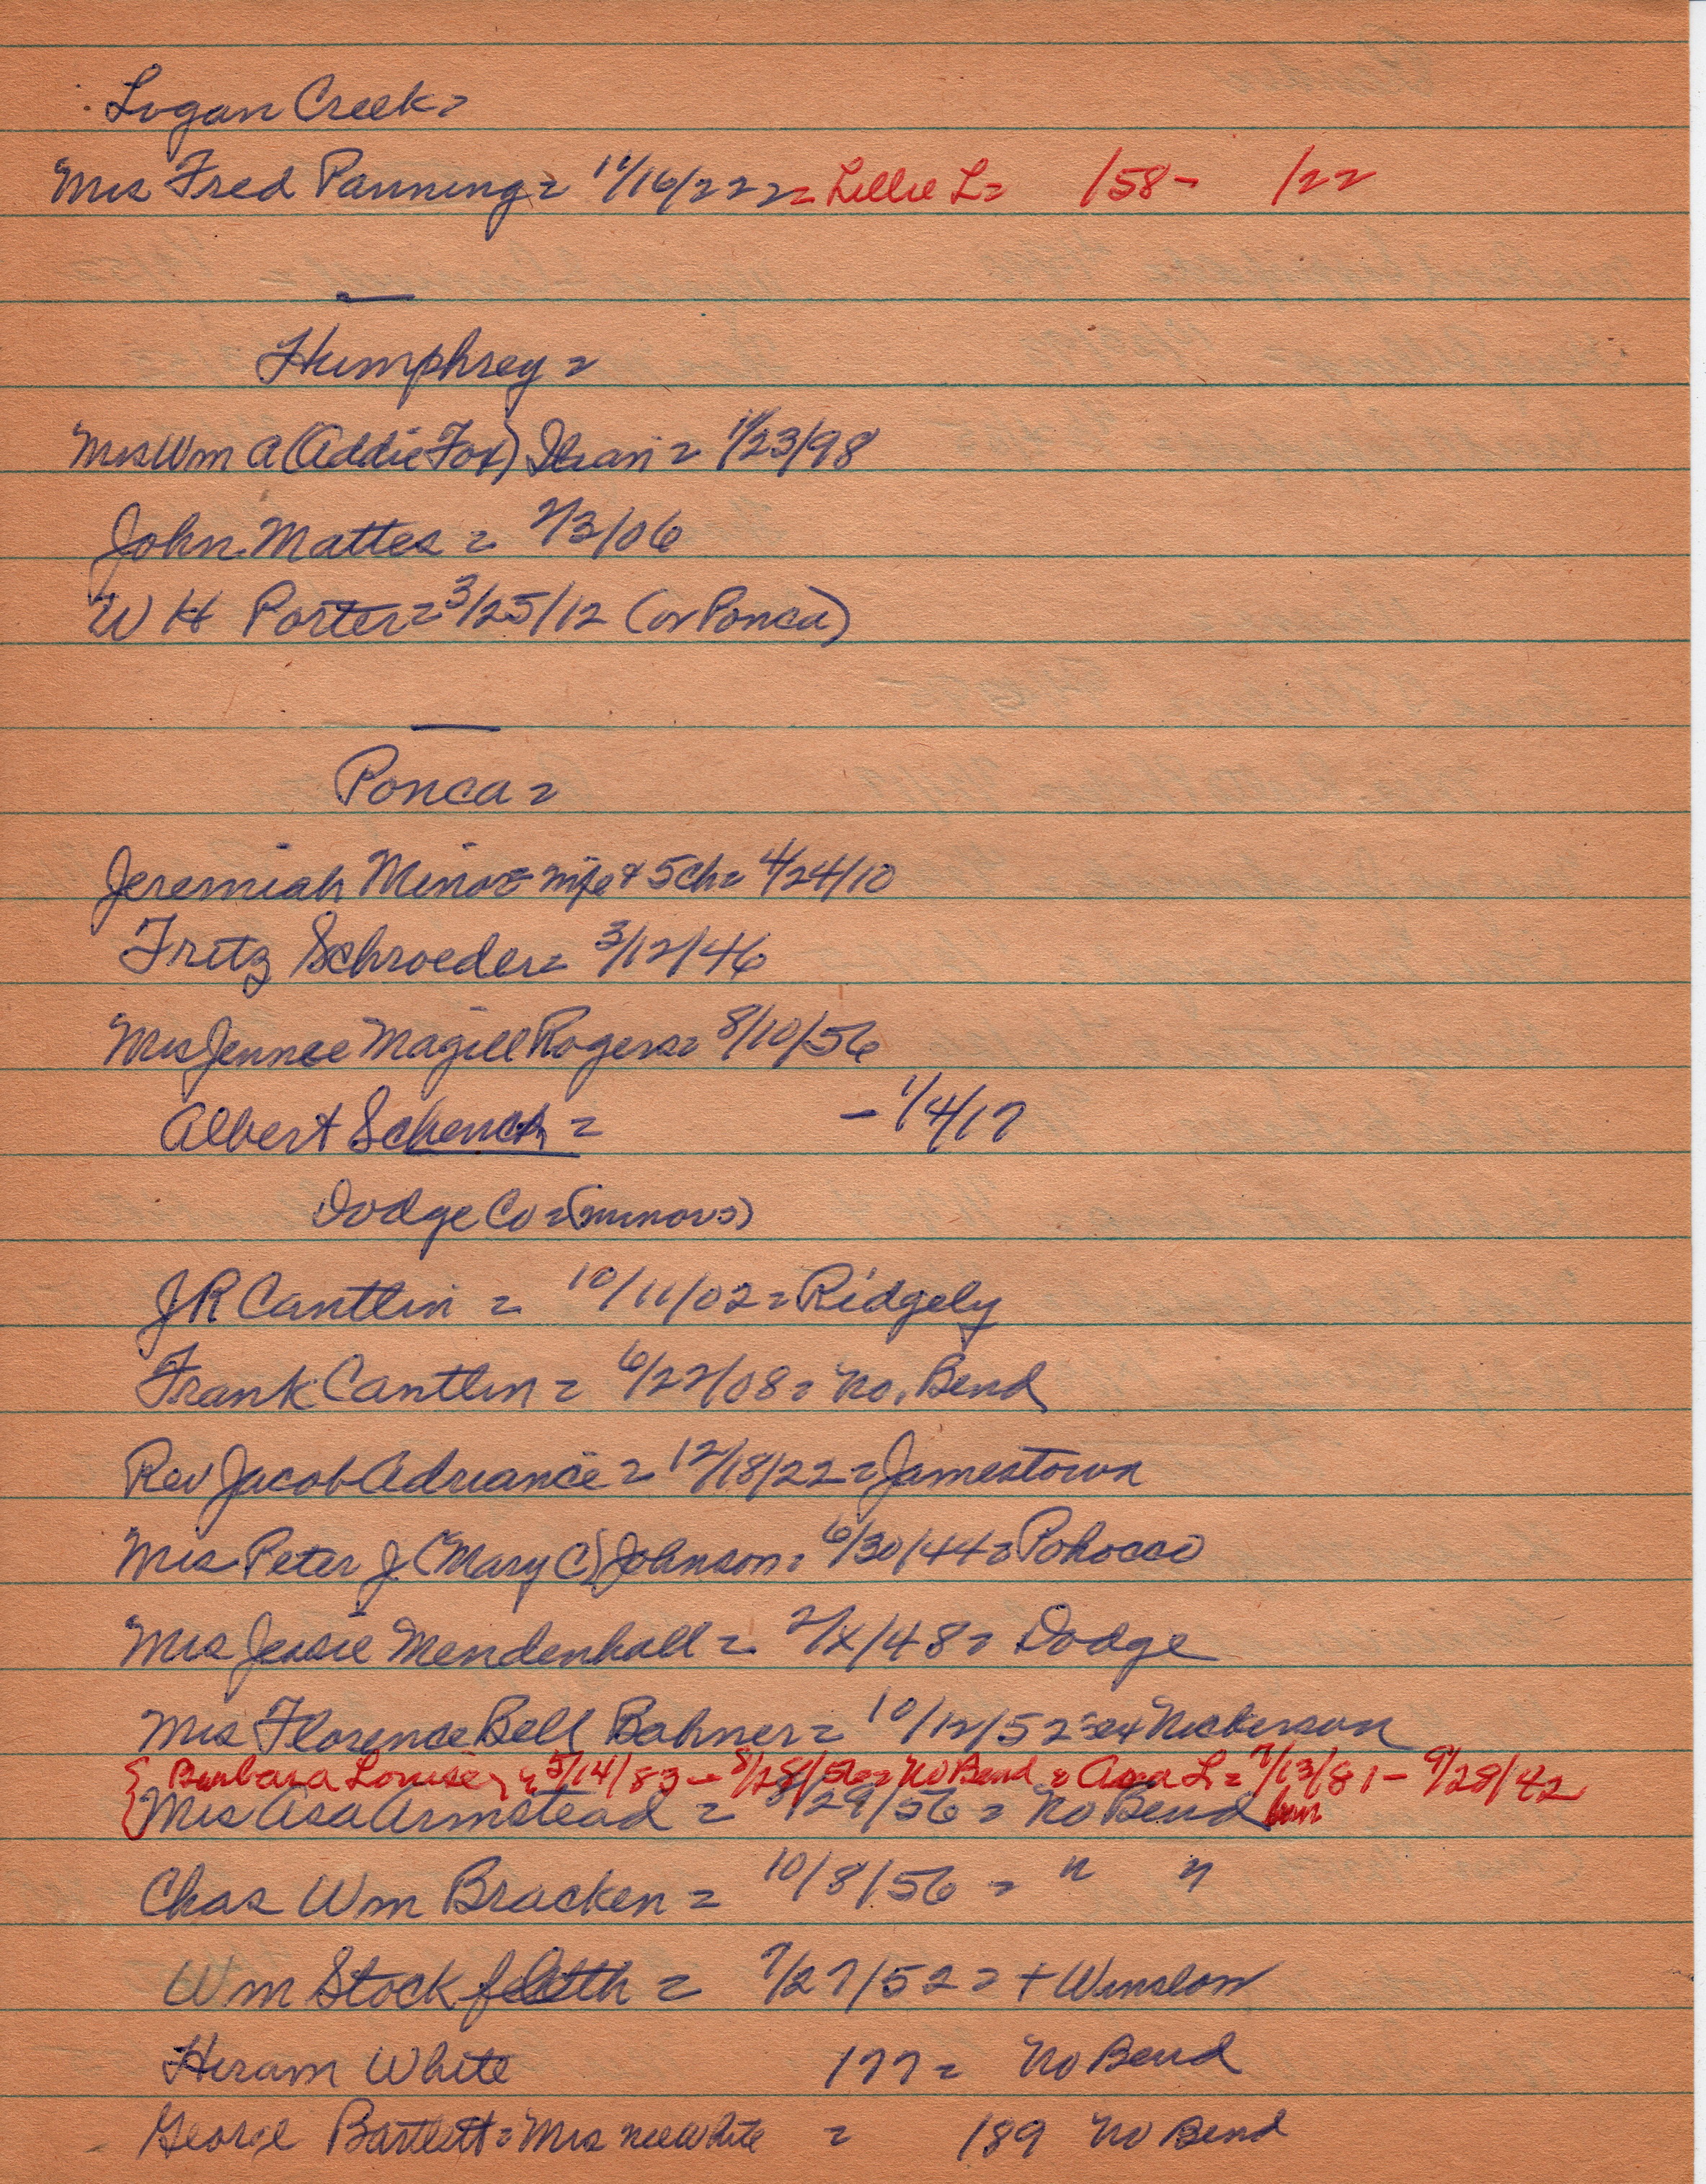 Logan Creek=
Mrs Fred Panning= 11/16/22 = Lillie L= /58- /22
Humphrey =
Mrs Wm A (Addie Fox) Dean = 1/23/98
John Mattes = 2/3/06
W H Porter = 3/25/12 (or Ponca)
Ponca =
Jeremiah Minor= wife & 5 ch= 4/24/10
Fritz Schroeder= 3/12/46
Mrs Jennee Magill Rogers= 8/10/56
Albert Schenck = - 1/4/17
Dodge Co = (minors)
JR Cantlin = 10/11/02 = Ridgely
Frank Cantlin = 6/22/08 = No. Bend
Rev Jacob Adriance = 12/18/22 = Jamestown
Mrs Peter J. (Mary C) Johnson = 6/30/44 = Pohocco
Mrs Jessie Mendenhall = 2/x/48 = Dodge
Mrs Florence Bell Bahner = 10/12/52 = Nickerson
{ Barbara Louise, = 5/14/83 - 8/28/56 = No Bend = Asa L = 7/13/81 - 9/28/42
Mrs Asa Armstead = 8/29/56 = No Bend
Chas Wm Bracken = 10/8/56 = " "
Wm Stockfleth = 7/27/52 = + Winslow
Hiram White 177 = No Bend
George Bartlett = Mrs nee White = 189 No Bend